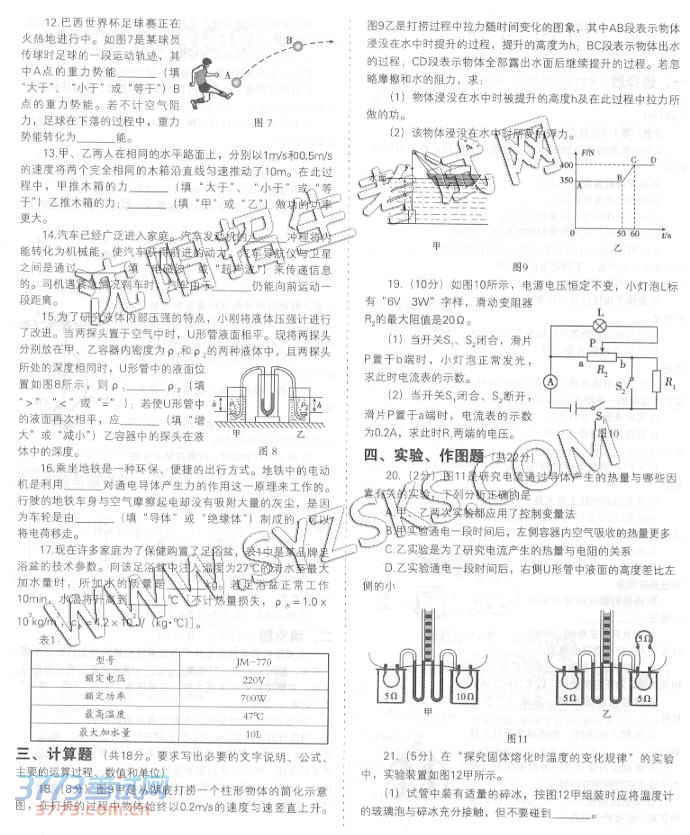 12.巴西世界杯足球赛正在
火热地进行中。如图7是某球员
传球时足球的一段运动轨迹，其
中A点的重力势能______（填
“大于”、“小于”或“等于”）B
点的重力势能。若不计空气阻
力，足球在下落的过程中，重力
势能转化为______能。
A
B
图 7
13.甲、乙两人在相同的水平路面上，分别以1m/s和0.5m/s
的速度将两个完全相同的木箱沿直线匀速推动了10m。在此过
程中，甲推木箱的力______（填“大于”、“小于”或“等
于”）乙推木箱的力；______（填“甲”或“乙”）做功的功率
更大。
14.汽车已经广泛进入家庭。汽车发动机的______冲程将内
能转化为机械能，使汽车获得前进的动力。汽车导航仪与卫星
之间是通过______（填“电磁波”或“超声波”）来传递信息
的。司机遇紧急情况刹车时，汽车由于______仍能向前运动一
段距离。
15.为了研究液体内部压强的特点，小别将液体压强计进行
了改进。当两探头置于空气中时，U形管液面相平。现将两探头
分别放在甲、乙容器内密度为ρ₁和ρ₂的两种液体中，且两探头
所处的深度相同时，U形管中的液面位
置如图8所示，则ρ₁______ρ₂（填
“>”“<”或“=”）；若使U形管中
的液面再次相平，应______（填“增
大”或“减小”）乙容器中的探头在液
体中的深度。
h
ρ₁
ρ₂
h
甲 乙
图 8
16.乘坐地铁是一种环保、便捷的出行方式。地铁中的电动
机是利用______对通电导体产生力的作用这一原理来工作的。
行驶的地铁车身与空气摩擦起电却没有吸附大量的灰尘，是因
为车轮是由______（填“导体”或“绝缘体”）制成的，可以
将电荷移走。
17.现在许多家庭为了保健购置了足浴盆，表1中是某品牌足
浴盆的技术参数。向该足浴盆中注入温度为27℃的清水至最大
加水量时，所加水的质量是______kg。若足浴盆正常工作
10min，水温将升高到______℃［不计热量损失，ρ水=1.0×
10³kg/m³，c水=4.2×10³J/（kg•℃）］。
表1：
型号 JM-770
额定电压 220V
额定功率 700W
最高温度 47℃
最大加水量 10L
三、计算题（共18分。要求写出必要的文字说明、公式、
主要的运算过程、数值和单位）
18.（8分）图9甲是从湖底打捞一个柱形物体的简化示意
图，在打捞的过程中物体始终以0.2m/s的速度匀速竖直上升。
图9乙是打捞过程中拉力随时间变化的图象，其中AB段表示物体
浸没在水中时提升的过程，提升的高度为h；BC段表示物体出水
的过程；CD段表示物体全部露出水面后继续提升的过程。若忽
略摩擦和水的阻力，求：
（1）物体浸没在水中时被提升的高度h及在此过程中拉力所
做的功。
（2）该物体浸没在水中时所受的浮力。
F/N
400
350
A
B
C
D
0
50 60
t/s
甲
乙
图9
19.（10分）如图10所示，电源电压恒定不变，小灯泡L标
有“6V 3W”字样，滑动变阻器
R₂的最大阻值是20Ω。
（1）当开关S₁、S₂闭合，滑片
P置于b端时，小灯泡正常发光，
求此时电流表的示数。
（2）当开关S₁闭合、S₂断开，
滑片P置于a端时，电流表的示数
为0.2A，求此时R₁两端的电压。
L
P
a
b
R₂
S₂
R₁
A
S₁
图10
四、实验、作图题（共22分）
20.（2分）图11是研究电流通过导体产生的热量与哪些因
素有关的实验，下列分析正确的是
A.甲、乙两次实验都应用了控制变量法
B.甲实验通电一段时间后，左侧容器内空气吸收的热量更多
C.乙实验是为了研究电流产生的热量与电阻的关系
D.乙实验通电一段时间后，右侧U形管中液面的高度差比左
侧的小
5Ω
10Ω
甲
5Ω
5Ω
5Ω
乙
图11
21.（5分）在“探究固体熔化时温度的变化规律”的实验
中，实验装置如图12甲所示。
（1）试管中装有适量的碎冰，按图12甲组装时应将温度计
的玻璃泡与碎冰充分接触，但不要碰到______。
沈阳招生考试网
WWW.SYZSKS.COM
3773考试网
3773.com